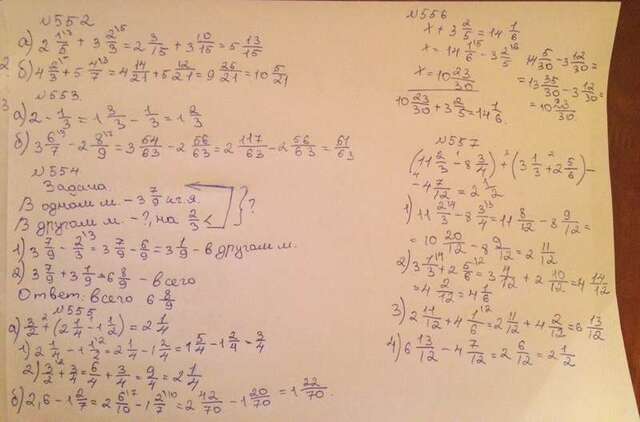 №552
а) 2 1/5 + 3 2/3 = 2 3/15 + 3 10/15 = 5 13/15
б) 4 2/3 + 5 4/7 = 4 14/21 + 5 12/21 = 9 26/21 = 10 5/21
№553.
а) 2 - 1/3 = 1 3/3 - 1/3 = 1 2/3
б) 3 6/7 - 2 8/9 = 3 54/63 - 2 56/63 = 2 117/63 - 2 56/63 = 61/63
№554
Задача
В одном м. - 3 7/9 кг.я.
В другом м. - ?, на 2/3 ?
1) 3 7/9 - 2/3 = 3 7/9 - 6/9 = 3 1/9 - в другом м.
2) 3 7/9 + 3 1/9 = 6 8/9 - всего
Ответ: всего 6 8/9
№555
а) 3/2 + (2 1/4 - 1 1/2) = 2 1/4
1) 2 1/4 - 1 1/2 = 2 1/4 - 1 2/4 = 1 5/4 - 1 2/4 = 3/4
2) 3/2 + 3/4 = 6/4 + 3/4 = 9/4 = 2 1/4
б) 2,6 - 1 2/7 = 2 6/10 - 1 2/7 = 2 42/70 - 1 20/70 = 1 22/70.
№556
x + 3 2/5 = 14 1/6
x = 14 1/6 - 3 2/5
x = 10 23/30
10 23/30 + 3 2/5 = 14 1/6.
14 5/30 - 3 12/30 =
= 13 35/30 - 3 12/30 =
= 10 23/30.
№557
(11 2/3 - 8 3/4) + (3 1/3 + 2 5/6) -
- 4 7/12 = 2 1/2
1) 11 2/3 - 8 3/4 = 11 8/12 - 8 9/12 =
= 10 20/12 - 8 9/12 = 2 11/12
2) 3 1/3 + 2 5/6 = 3 4/12 + 2 10/12 = 4 14/12
= 4 2/12 = 4 1/6
3) 2 11/12 + 4 1/6 = 2 11/12 + 4 2/12 = 6 13/12
4) 6 13/12 - 4 7/12 = 2 6/12 = 2 1/2